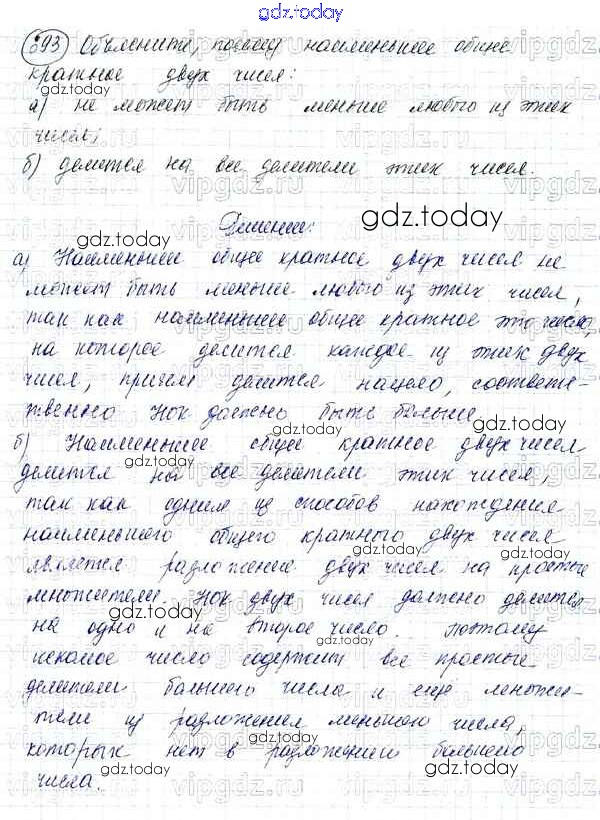 gdz.today
893 Объясните, почему наименьшее общее
кратное двух чисел:
а) не может быть меньше любого из этих
чисел;
б) делится на все делители этих чисел.
Решение:
gdz.today
gdz.today
а) Наименьшее общее кратное двух чисел не
может быть меньше любого из этих чисел,
так как наименьшее общее кратное это число,
на которое делится каждое из этих двух
чисел, причем делится нацело, соответс-
твенно НОК должно быть больше.
б) Наименьшее общее кратное двух чисел
делится на все делители этих чисел,
так как одним из способов нахождения
наименьшего общего кратного двух чисел
является разложение двух чисел на простые
множители. НОК двух чисел должно делится
на одно и на второе число. Поэтому
искомое число содержит все простые
делители большего числа и еще множи-
тели из разложения меньшего числа,
которых нет в разложении большего
числа.